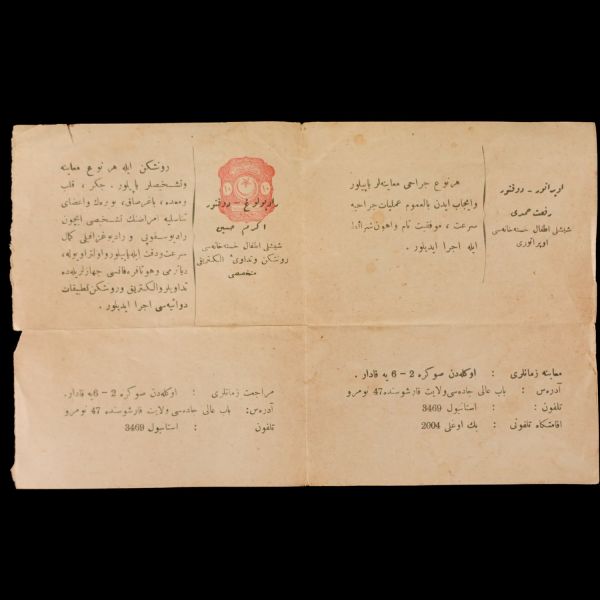 اوپراتور - دوقتور
رفعت حمدی
شیشلی اطفال خسته‌خانه‌سی
اوپراتوری
هر نوع جراحی معاینه‌لر یاپیلور
وایجاب ایدن بالعموم عملیات جراحیه
سرعت ، موفقیت تام واهون شرائط
ایله اجرا ایدیلور .
معاینه زمانلری : اوكله‌دن صوكره 2 – 6 یه قادار .
آدره‌س : باب عالی جاده‌سی ولایت قارشوسنده 47 نومرو
تلفون : استانبول 3469
اقامتگاه تلفونی : بك اوغلی 2004
رادیولوغ - دوقتور
اكرم حسین
شیشلی اطفال خسته‌خانه‌سی
رونتكن وتداوئ الكتریقی
متخصصی
رونتكن ایله هر نوع معاینه
وتشخیصلر یاپیلور . جكر ، قلب
ومعده ، باغرصاق ، بوبرك واعضای
تناسلیه امراضنك تشخیصی ایچون
رادیوسقوپی و رادیوغرافیلی كمال
سرعت ودقت ایله یاپیلور واولتراویوله ،
دیاترمی وهوتافره‌قانسی جهازلریله‌ده
تداویلر والكتریق ورونتكن تطبیقات
دوائیه‌سی اجرا ایدیلور .
مراجعت زمانلری : اوكله‌دن صوكره 2 – 6 یه قادار.
آدره‌س : باب عالی جاده‌سی ولایت قارشوسنده 47 نومرو
تلفون : استانبول 3469